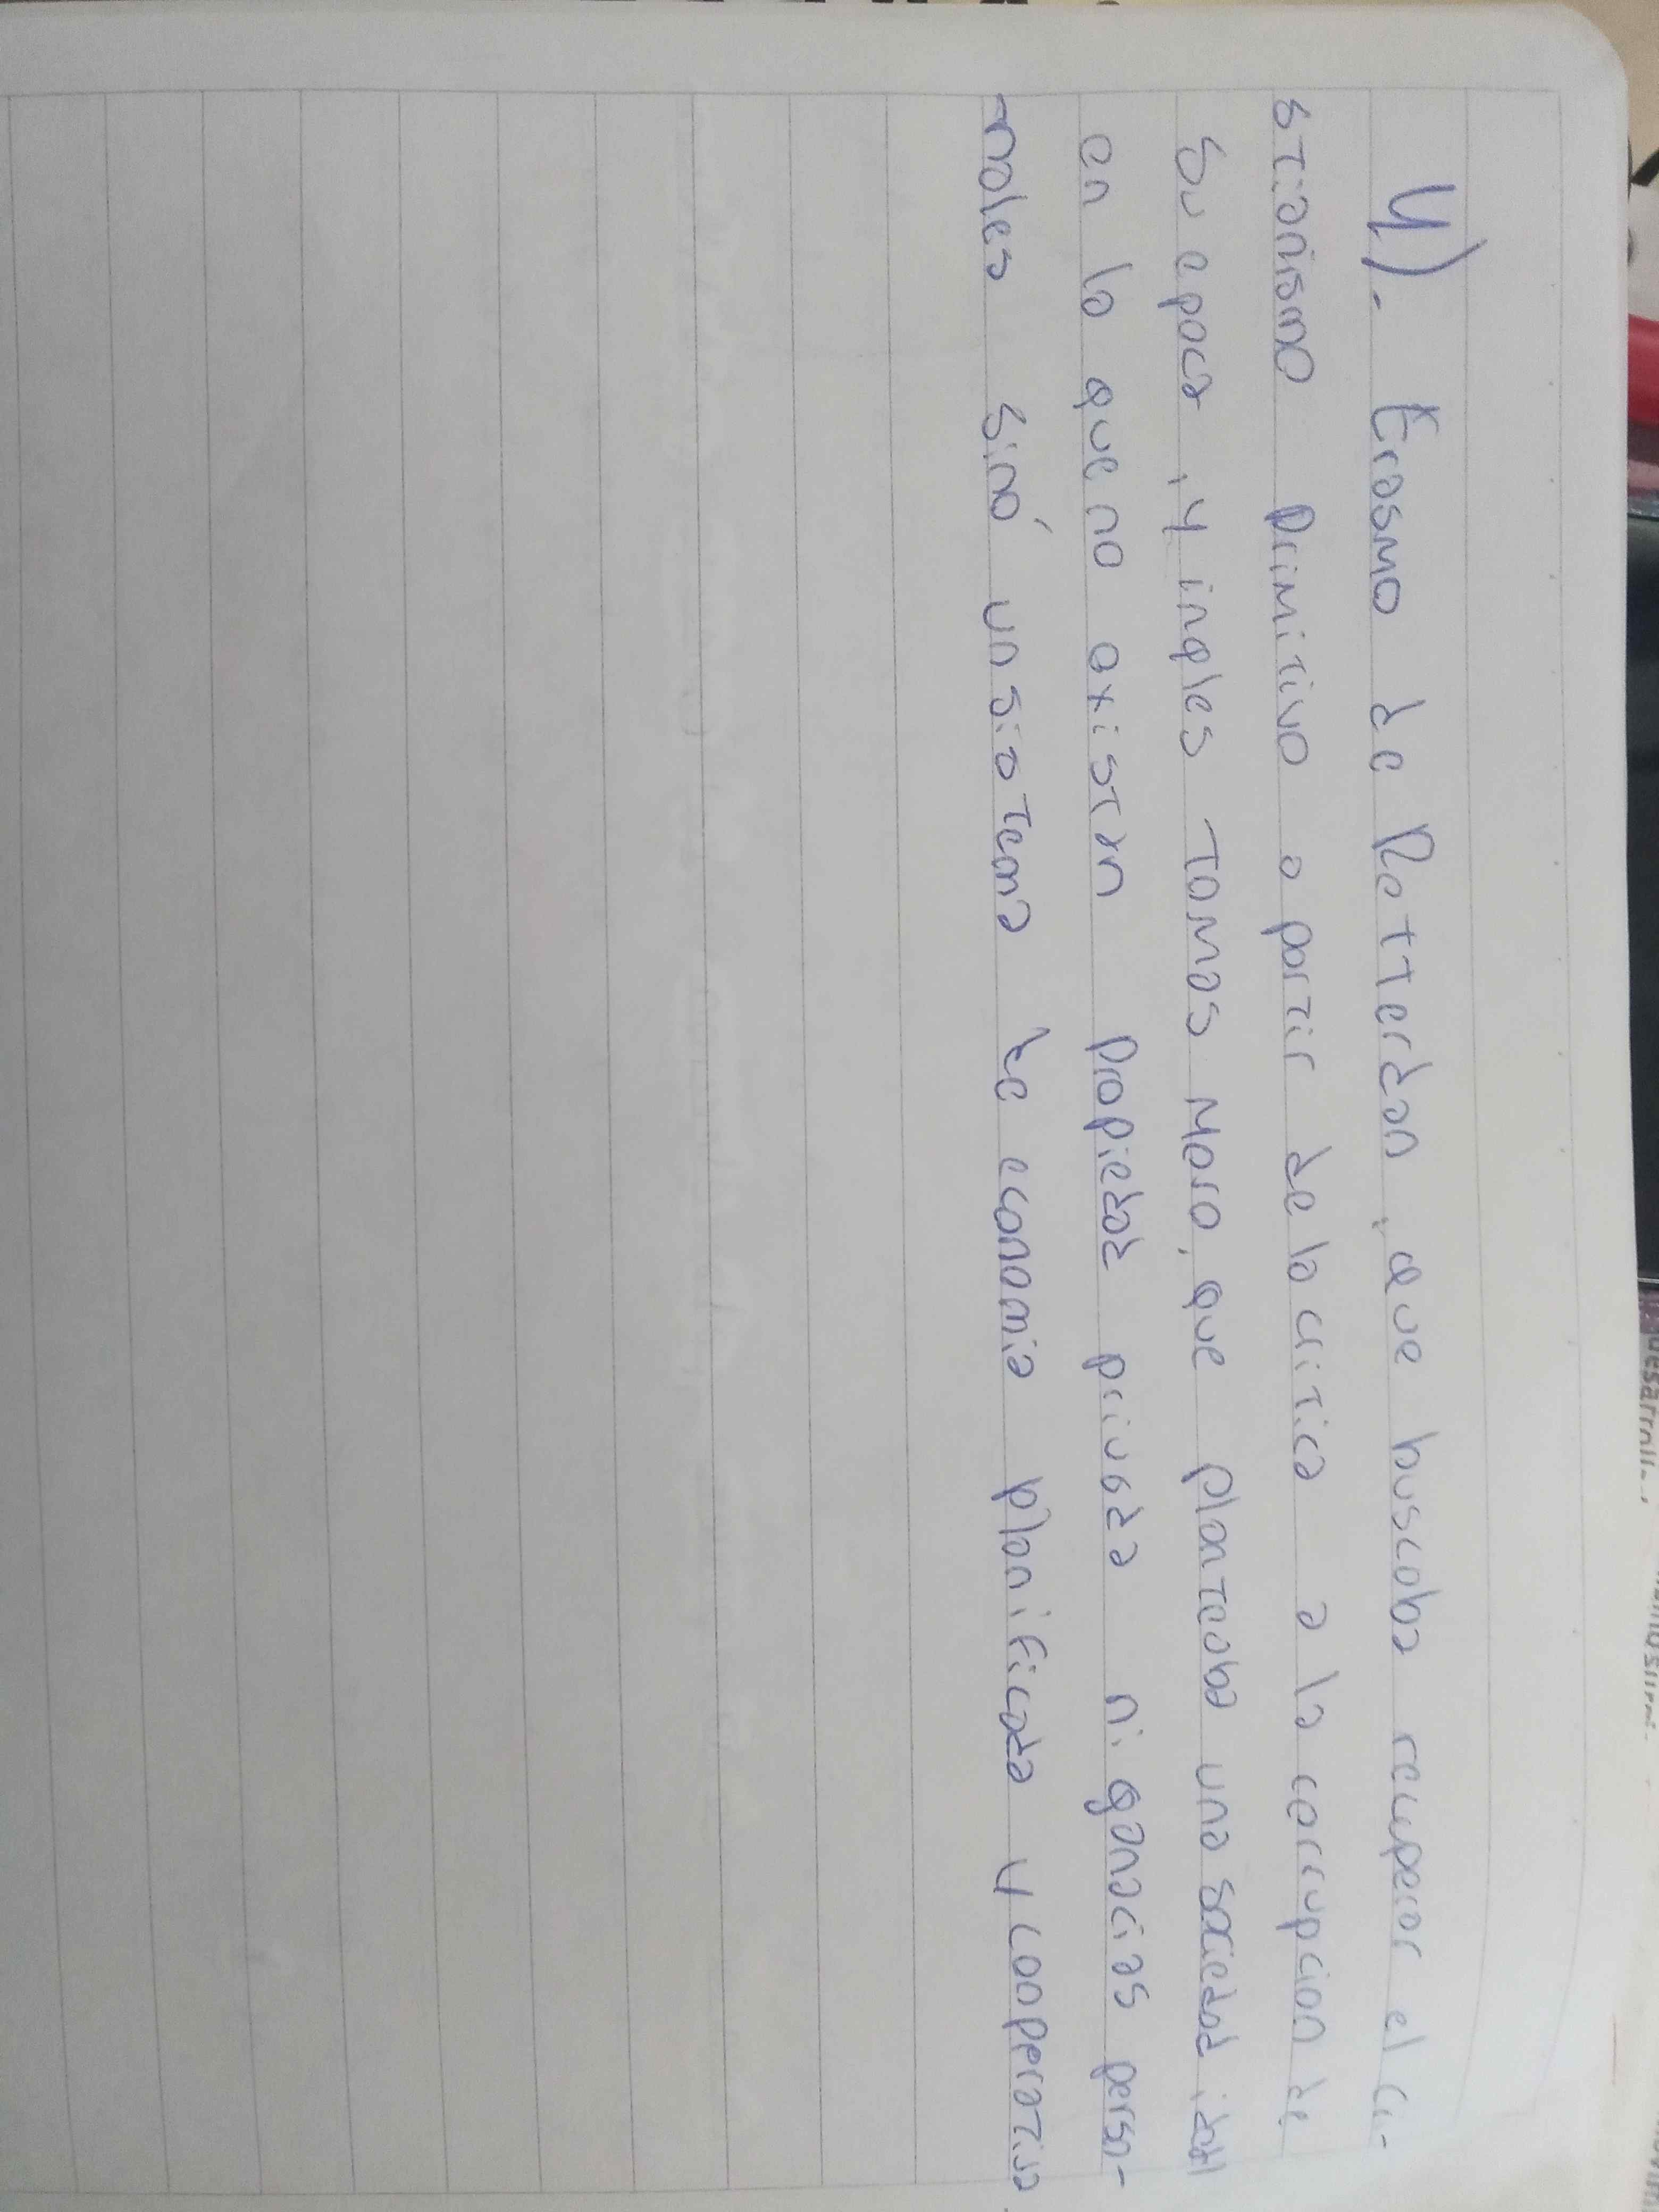 4).- Erasmo de Rotterdan, que buscaba recuperar el cri-
stianismo primitivo a partir de la critica a la corrupcion de
su epoca, y ingles Tomas Moro, que planteaba una sociedad ideal
en la que no existan propiedad privada ni ganacias person-
-nales sinó un sistema de economia planificada y conperativa
desarroll